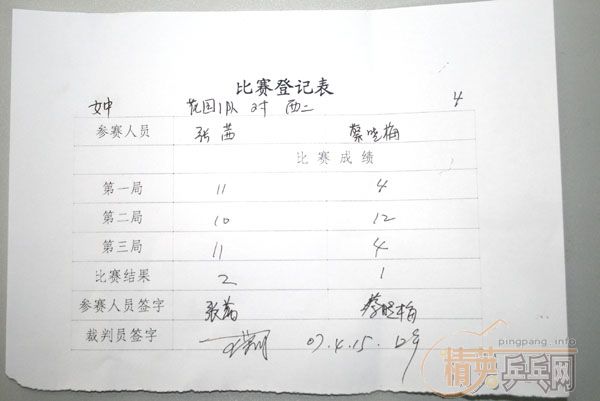 比赛登记表
女中 花园1队 对 西二 4
参赛人员 张茜 蔡晓梅
比赛成绩
第一局 11 4
第二局 10 12
第三局 11 4
比赛结果 2 1
参赛人员签字 张茜 蔡晓梅
裁判员签字 07.4.15.
pingpang.info
精英乒乓网